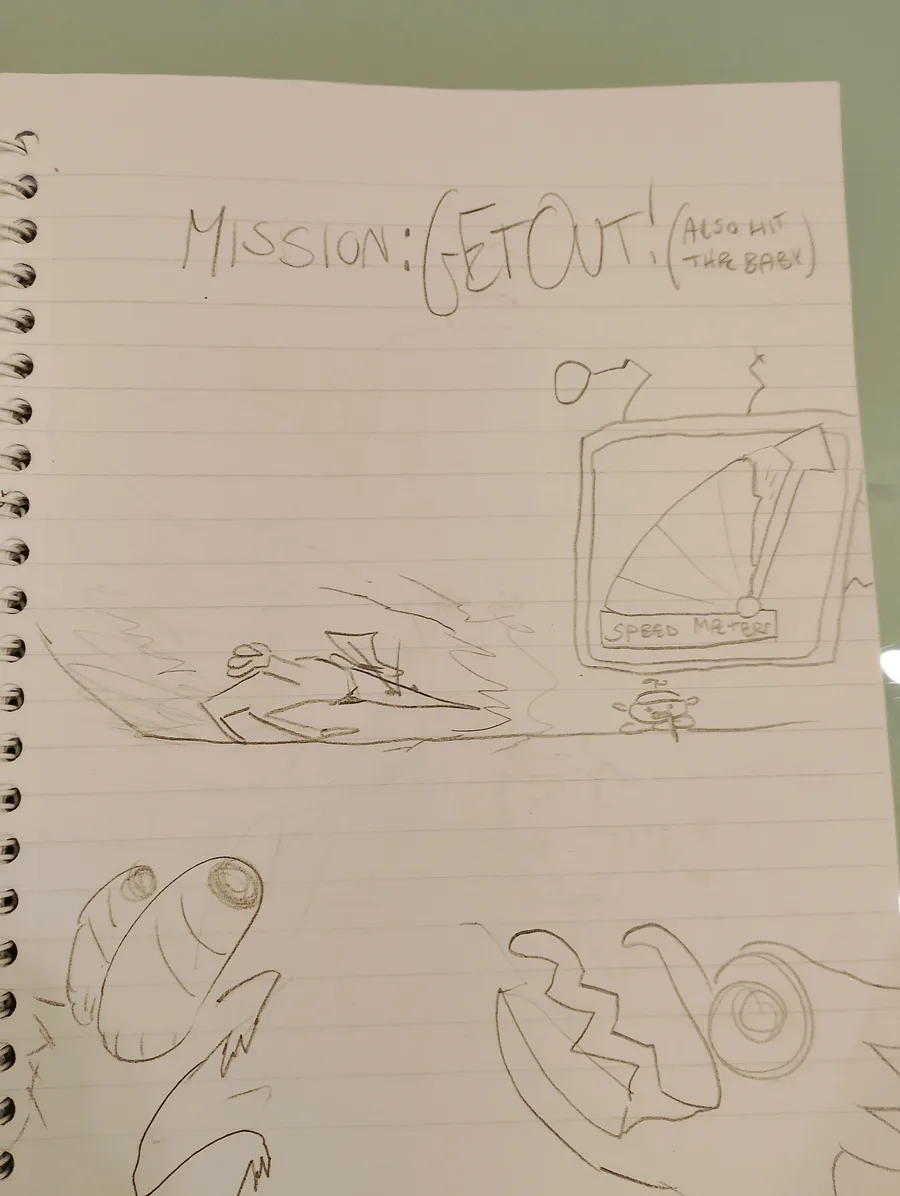 MISSION: GET OUT! (ALSO HIT
THE BABY)
SPEED METER